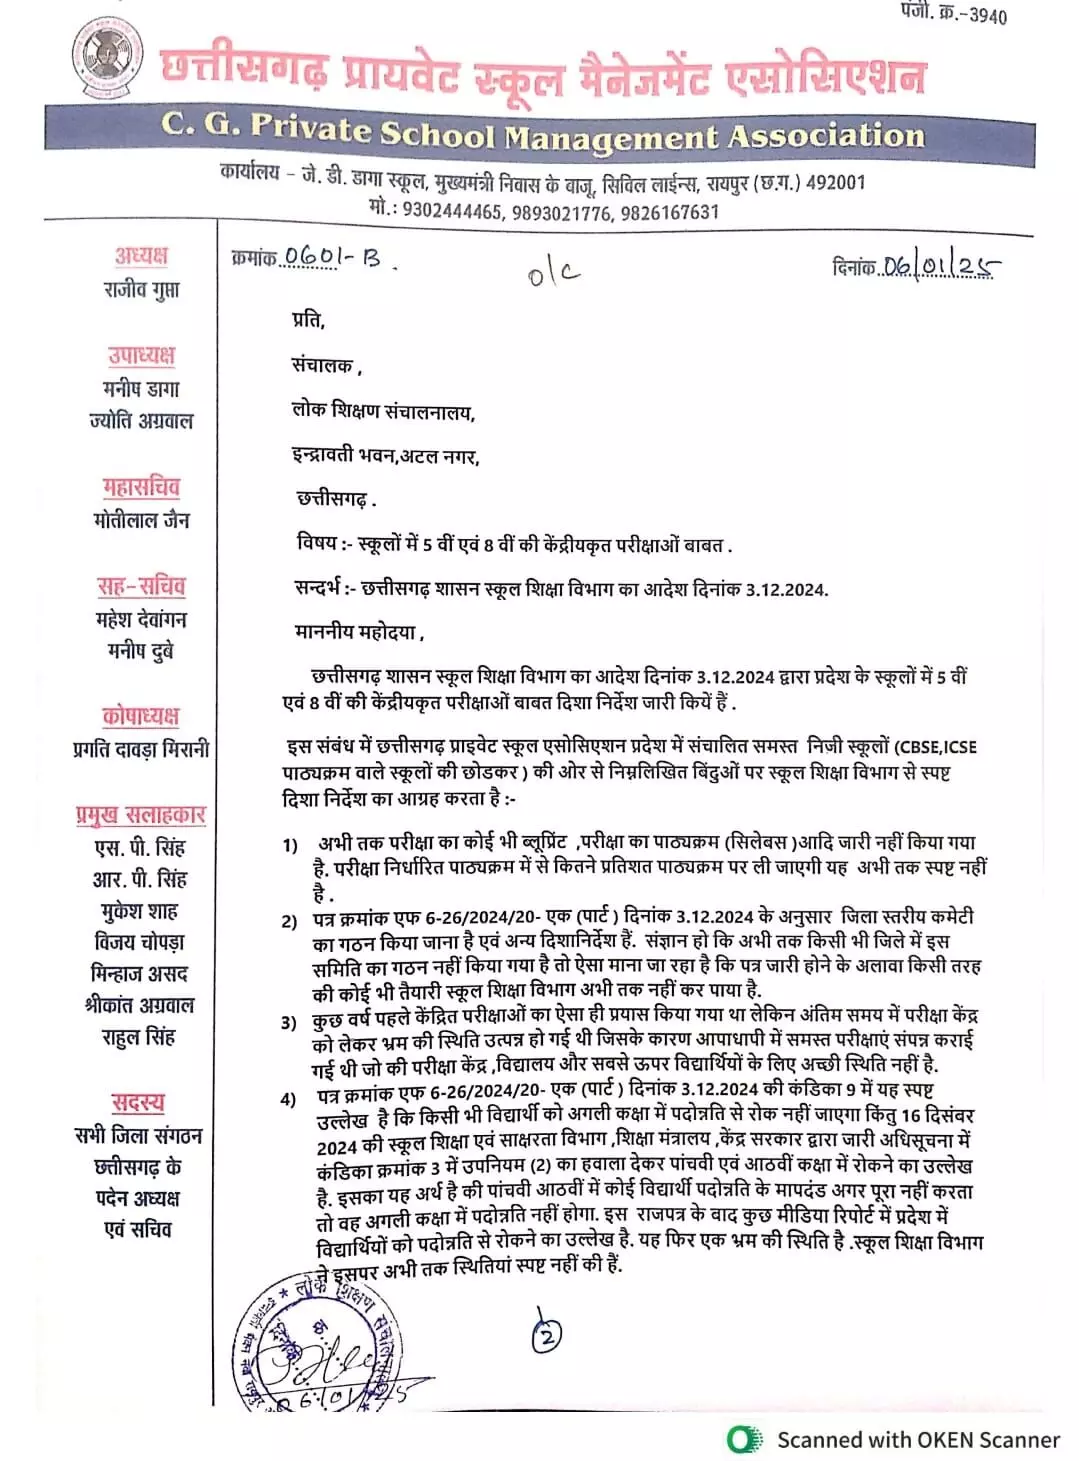 पंजी. क्र.-3940
छत्तीसगढ़ प्रायवेट स्कूल मैनेजमेंट एसोसिएशन
C. G. Private School Management Association
कार्यालय - जे. डी. डागा स्कूल, मुख्यमंत्री निवास के बाजू, सिविल लाईन्स, रायपुर (छ.ग.) 492001
मो.: 9302444465, 9893021776, 9826167631
अध्यक्ष
राजीव गुप्ता
उपाध्यक्ष
मनीष डागा
ज्योति अग्रवाल
महासचिव
मोतीलाल जैन
सह-सचिव
महेश देवांगन
मनीष दुबे
कोषाध्यक्ष
प्रगति दावड़ा मिरानी
प्रमुख सलाहकार
एस. पी. सिंह
आर. पी. सिंह
मुकेश शाह
विजय चोपड़ा
मिन्हाज असद
श्रीकांत अग्रवाल
राहुल सिंह
सदस्य
सभी जिला संगठन
छत्तीसगढ़ के
पदेन अध्यक्ष
एवं सचिव
क्रमांक..0601-B.
o/c
दिनांक..06/01/25
प्रति,
संचालक ,
लोक शिक्षण संचालनालय,
इन्द्रावती भवन,अटल नगर,
छत्तीसगढ़ .
विषय :- स्कूलों में 5 वीं एवं 8 वीं की केंद्रीयकृत परीक्षाओं बाबत .
सन्दर्भ :- छत्तीसगढ़ शासन स्कूल शिक्षा विभाग का आदेश दिनांक 3.12.2024.
माननीय महोदया ,
छत्तीसगढ़ शासन स्कूल शिक्षा विभाग का आदेश दिनांक 3.12.2024 द्वारा प्रदेश के स्कूलों में 5 वीं
एवं 8 वीं की केंद्रीयकृत परीक्षाओं बाबत दिशा निर्देश जारी कियें हैं .
इस संबंध में छत्तीसगढ़ प्राइवेट स्कूल एसोसिएशन प्रदेश में संचालित समस्त निज़ी स्कूलों (CBSE,ICSE
पाठ्यक्रम वाले स्कूलों की छोडकर ) की ओर से निम्नलिखित बिंदुओं पर स्कूल शिक्षा विभाग से स्पष्ट
दिशा निर्देश का आग्रह करता है :-
1) अभी तक परीक्षा का कोई भी ब्लूप्रिंट ,परीक्षा का पाठ्यक्रम (सिलेबस )आदि जारी नहीं किया गया
है. परीक्षा निर्धारित पाठ्यक्रम में से कितने प्रतिशत पाठ्यक्रम पर ली जाएगी यह अभी तक स्पष्ट नहीं
है .
2) पत्र क्रमांक एफ 6-26/2024/20- एक (पार्ट ) दिनांक 3.12.2024 के अनुसार जिला स्तरीय कमेटी
का गठन किया जाना है एवं अन्य दिशानिर्देश हैं. संज्ञान हो कि अभी तक किसी भी जिले में इस
समिति का गठन नहीं किया गया है तो ऐसा माना जा रहा है कि पत्र जारी होने के अलावा किसी तरह
की कोई भी तैयारी स्कूल शिक्षा विभाग अभी तक नहीं कर पाया है.
3) कुछ वर्ष पहले केंद्रित परीक्षाओं का ऐसा ही प्रयास किया गया था लेकिन अंतिम समय में परीक्षा केंद्र
को लेकर भ्रम की स्थिति उत्पन्न हो गई थी जिसके कारण आपाधापी में समस्त परीक्षाएं संपन्न कराई
गई थी जो की परीक्षा केंद्र ,विद्यालय और सबसे ऊपर विद्यार्थियों के लिए अच्छी स्थिति नहीं है.
4) पत्र क्रमांक एफ 6-26/2024/20- एक (पार्ट ) दिनांक 3.12.2024 की कंडिका 9 में यह स्पष्ट
उल्लेख है कि किसी भी विद्यार्थी को अगली कक्षा में पदोन्नति से रोक नहीं जाएगा किंतु 16 दिसंबर
2024 की स्कूल शिक्षा एवं साक्षरता विभाग ,शिक्षा मंत्रालय ,केंद्र सरकार द्वारा जारी अधिसूचना में
कंडिका क्रमांक 3 में उपनियम (2) का हवाला देकर पांचवी एवं आठवीं कक्षा में रोकने का उल्लेख
है. इसका यह अर्थ है की पांचवी आठवीं में कोई विद्यार्थी पदोन्नति के मापदंड अगर पूरा नहीं करता
तो वह अगली कक्षा में पदोन्नति नहीं होगा. इस राजपत्र के बाद कुछ मीडिया रिपोर्ट में प्रदेश में
विद्यार्थियों को पदोन्नति से रोकने का उल्लेख है. यह फिर एक भ्रम की स्थिति है .स्कूल शिक्षा विभाग
ने इसपर अभी तक स्थितियां स्पष्ट नहीं की हैं.
लोक शिक्षण संचालनालय
06/01/25
2
Scanned with OKEN Scanner